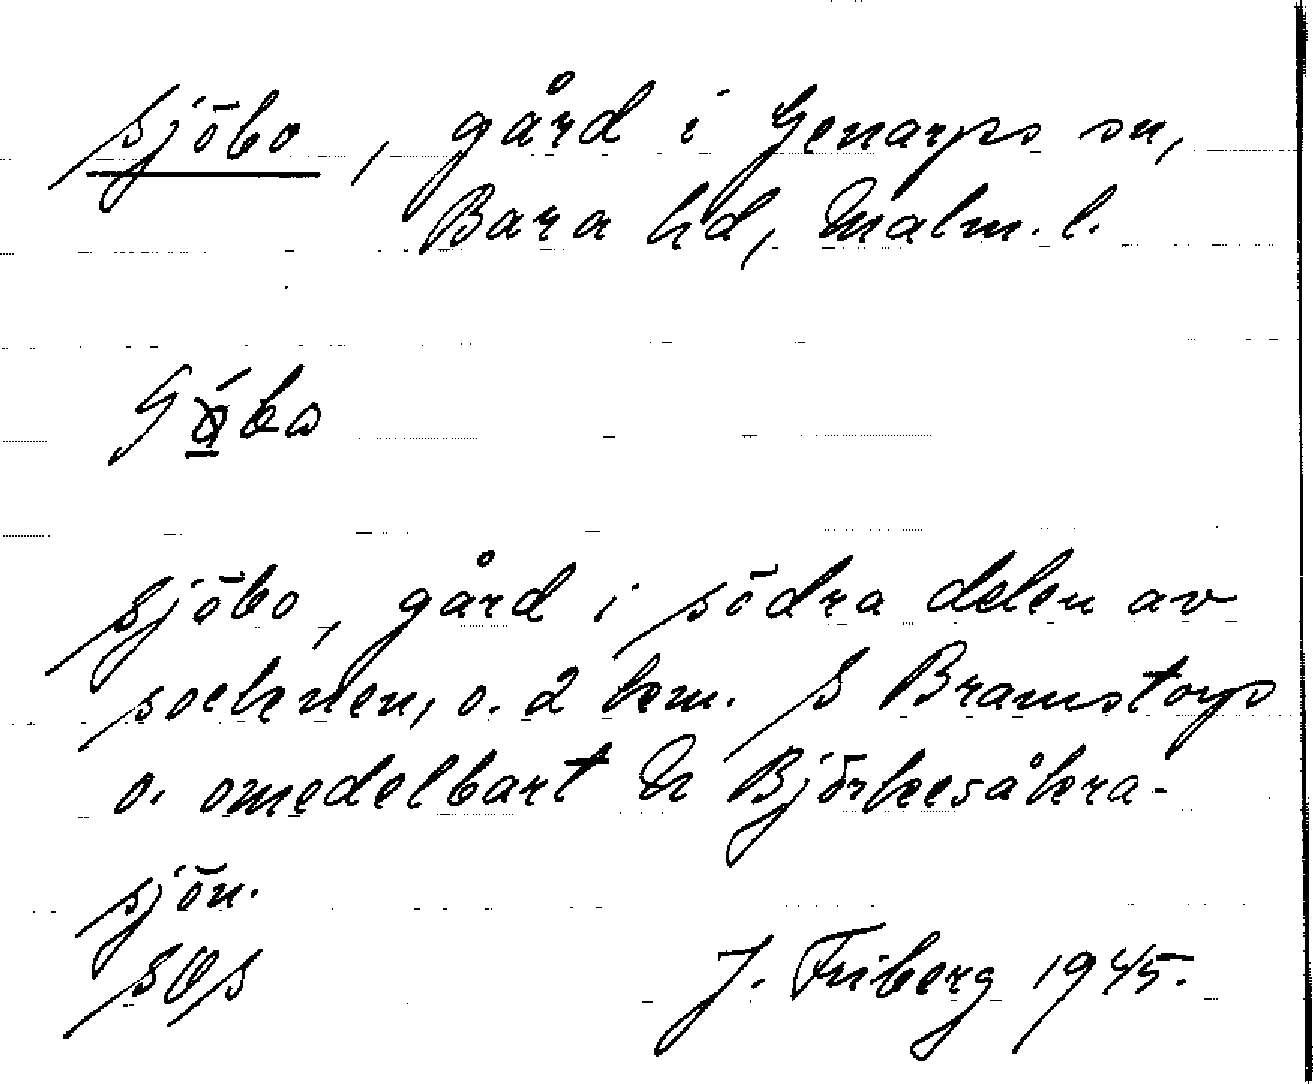 Sjöbo, gård i Genarps sn,
Bara hd, Malm. l.
Sjöbo, gård i södra delen av
socknen, o. 2 km. S Bramstorp
o. omedelbart N Björkesåkra-
sjön.
SOS J. Friberg 1945.